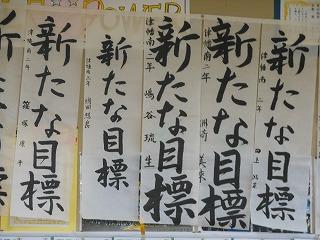 新たな目標
津幡南二年
新たな目標
津幡南二年 嶋谷琉生
新たな目標
津幡南二年 洲崎美来
新たな目標
津幡南二年
新たな目標
津幡南二年
POWER